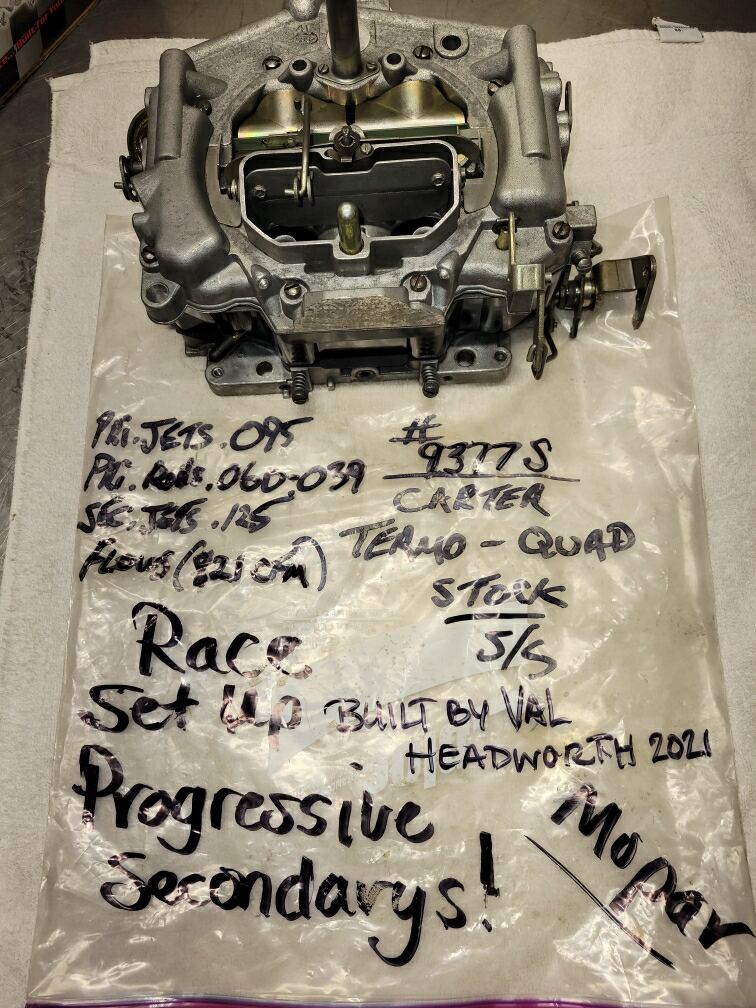 PRI. JETS .095
PRI. Rods .060-039
SEC. JETS .125
FLOWS (821 cfm)
# 9377S
CARTER
TERMO-QUAD
STOCK
S/S
Race
Set Up
BUILT BY VAL
HEADWORTH 2021
Progressive
Secondarys!
Mopar